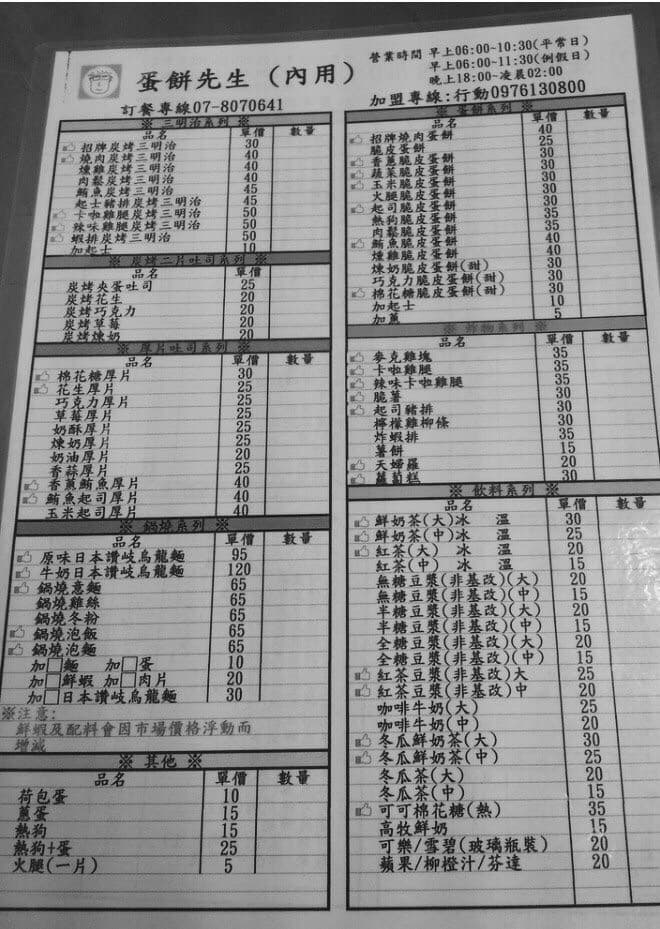 蛋餅先生（內用）
訂餐專線07-8070641
營業時間 早上06:00~10:30(平常日)
早上06:00~11:30(例假日)
晚上18:00~凌晨02:00
加盟專線:行動0976130800
※ 三明治系列 ※
品名 單價 數量
招牌炭烤三明治 30
燒肉炭烤三明治 40
燻雞炭烤三明治 40
肉鬆炭烤三明治 40
鮪魚炭烤三明治 45
起士豬排炭烤三明治 45
卡啦雞腿炭烤三明治 50
辣味雞腿炭烤三明治 50
蝦排炭烤三明治 50
加起士 10
※ 炭烤二片吐司系列 ※
品名 單價 數量
炭烤夾蛋吐司 25
炭烤花生 20
炭烤巧克力 20
炭烤草莓 20
炭烤煉奶 20
※ 厚片吐司系列 ※
品名 單價 數量
棉花糖厚片 30
花生厚片 25
巧克力厚片 25
草莓厚片 25
奶酥厚片 25
煉奶厚片 25
奶油厚片 20
香蒜厚片 25
香蔥鮪魚厚片 40
鮪魚起司厚片 40
玉米起司厚片 40
※ 鍋燒系列 ※
品名 單價 數量
原味日本讚岐烏龍麵 95
牛奶日本讚岐烏龍麵 120
鍋燒意麵 65
鍋燒雞絲 65
鍋燒冬粉 65
鍋燒泡飯 65
鍋燒泡麵 65
加□麵 加□蛋 10
加□鮮蝦 加□肉片 20
加□日本讚岐烏龍麵 30
※注意:
鮮蝦及配料會因市場價格浮動而
增減
※ 其他 ※
品名 單價 數量
荷包蛋 10
蔥蛋 15
熱狗 15
熱狗+蛋 25
火腿(一片) 5
※ 蛋餅系列 ※
品名 單價 數量
招牌燒肉蛋餅 40
脆皮蛋餅 25
香蔥脆皮蛋餅 30
蔬菜脆皮蛋餅 30
玉米脆皮蛋餅 30
火腿脆皮蛋餅 30
起司脆皮蛋餅 30
熱狗脆皮蛋餅 35
肉鬆脆皮蛋餅 35
鮪魚脆皮蛋餅 40
燻雞脆皮蛋餅 40
煉奶脆皮蛋餅(甜) 30
巧克力脆皮蛋餅(甜) 30
棉花糖脆皮蛋餅(甜) 30
加起士 10
加蔥 5
※ 炸物系列 ※
品名 單價 數量
麥克雞塊 35
卡啦雞腿 35
辣味卡啦雞腿 35
脆薯 30
起司豬排 30
檸檬雞柳條 30
炸蝦排 35
薯餅 15
天婦羅 20
蘿蔔糕 30
※ 飲料系列 ※
品名 單價 數量
鮮奶茶(大)冰 溫 30
鮮奶茶(中)冰 溫 25
紅茶(大) 冰 溫 20
紅茶(中) 冰 溫 15
無糖豆漿(非基改)(大) 20
無糖豆漿(非基改)(中) 15
半糖豆漿(非基改)(大) 20
半糖豆漿(非基改)(中) 15
全糖豆漿(非基改)(大) 20
全糖豆漿(非基改)(中) 15
紅茶豆漿(非基改)大 25
紅茶豆漿(非基改)中 20
咖啡牛奶(大) 25
咖啡牛奶(中) 20
冬瓜鮮奶茶(大) 30
冬瓜鮮奶茶(中) 25
冬瓜茶(大) 20
冬瓜茶(中) 15
可可棉花糖(熱) 35
高牧鮮奶 15
可樂/雪碧(玻璃瓶裝) 20
蘋果/柳橙汁/芬達 20